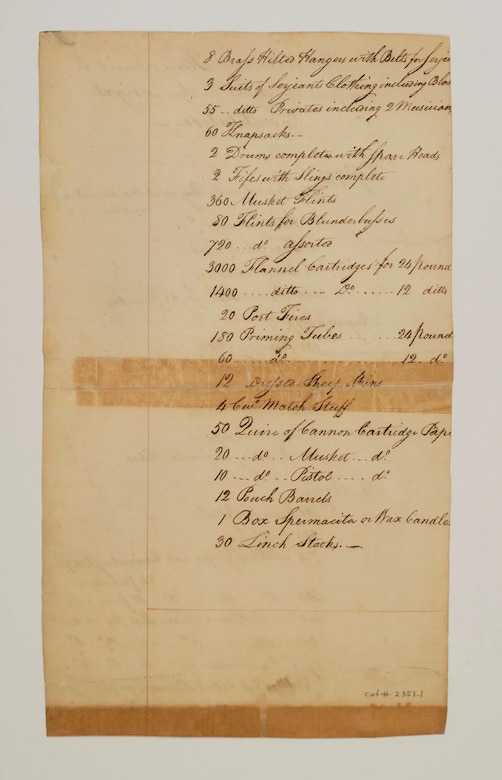 8 Brass Hilted Hangers with Belts for Serje
3 Suits of Serjeants Clothing including Blo
55 .. ditto Privates including 2 Musician
60 Knapsacks. –
2 Drums complete with spare Heads
2 Fifes with Slings complete
360 Musket Flints
50 Flints for Blunderbusses
720 ... do. assorted
3000 Flannel Cartridges for 24 pound
1400 .... ditto .... Do. ...... 12 ditto
20 Port Fires
150 Priming Tubes ...... 24 pound
60 .... Do. ............ 12 .. do.
12 Dressed Sheep Skins
4 Cwt. Match Stuff
50 Quire of Cannon Cartridge Pape
20 ... do. .. Musket ... do.
10 ... do. .. Pistol .... do.
12 Pouch Barrels
1 Box Spermacita or Wax Candle
30 Linch Stocks. –
Cat# 2353.1